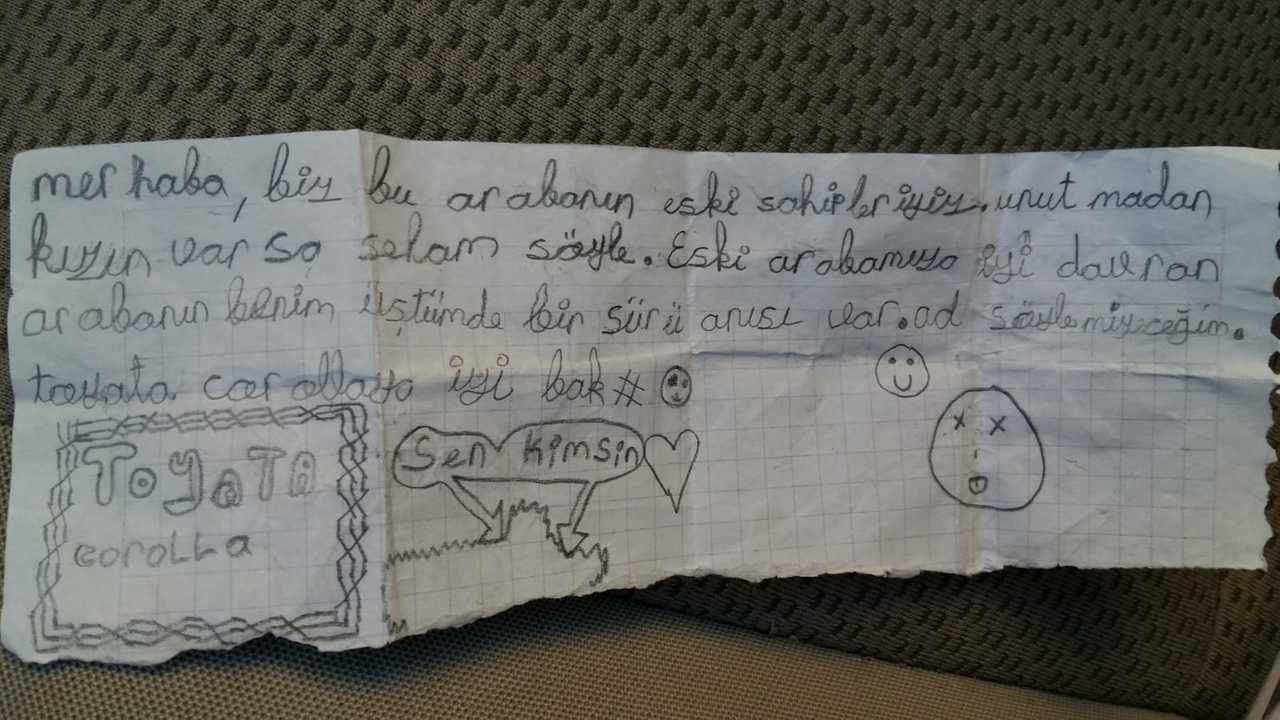 merhaba, biz bu arabanın eski sahipleriyiz. unutmadan
kızın varsa selam söyle. Eski arabamıza iyi davran
arabanın benim üstümde bir sürü anısı var. ad söylemiyeceğim.
toyata corollaya iyi bak #
Sen kimsin
TOYATA
corolla